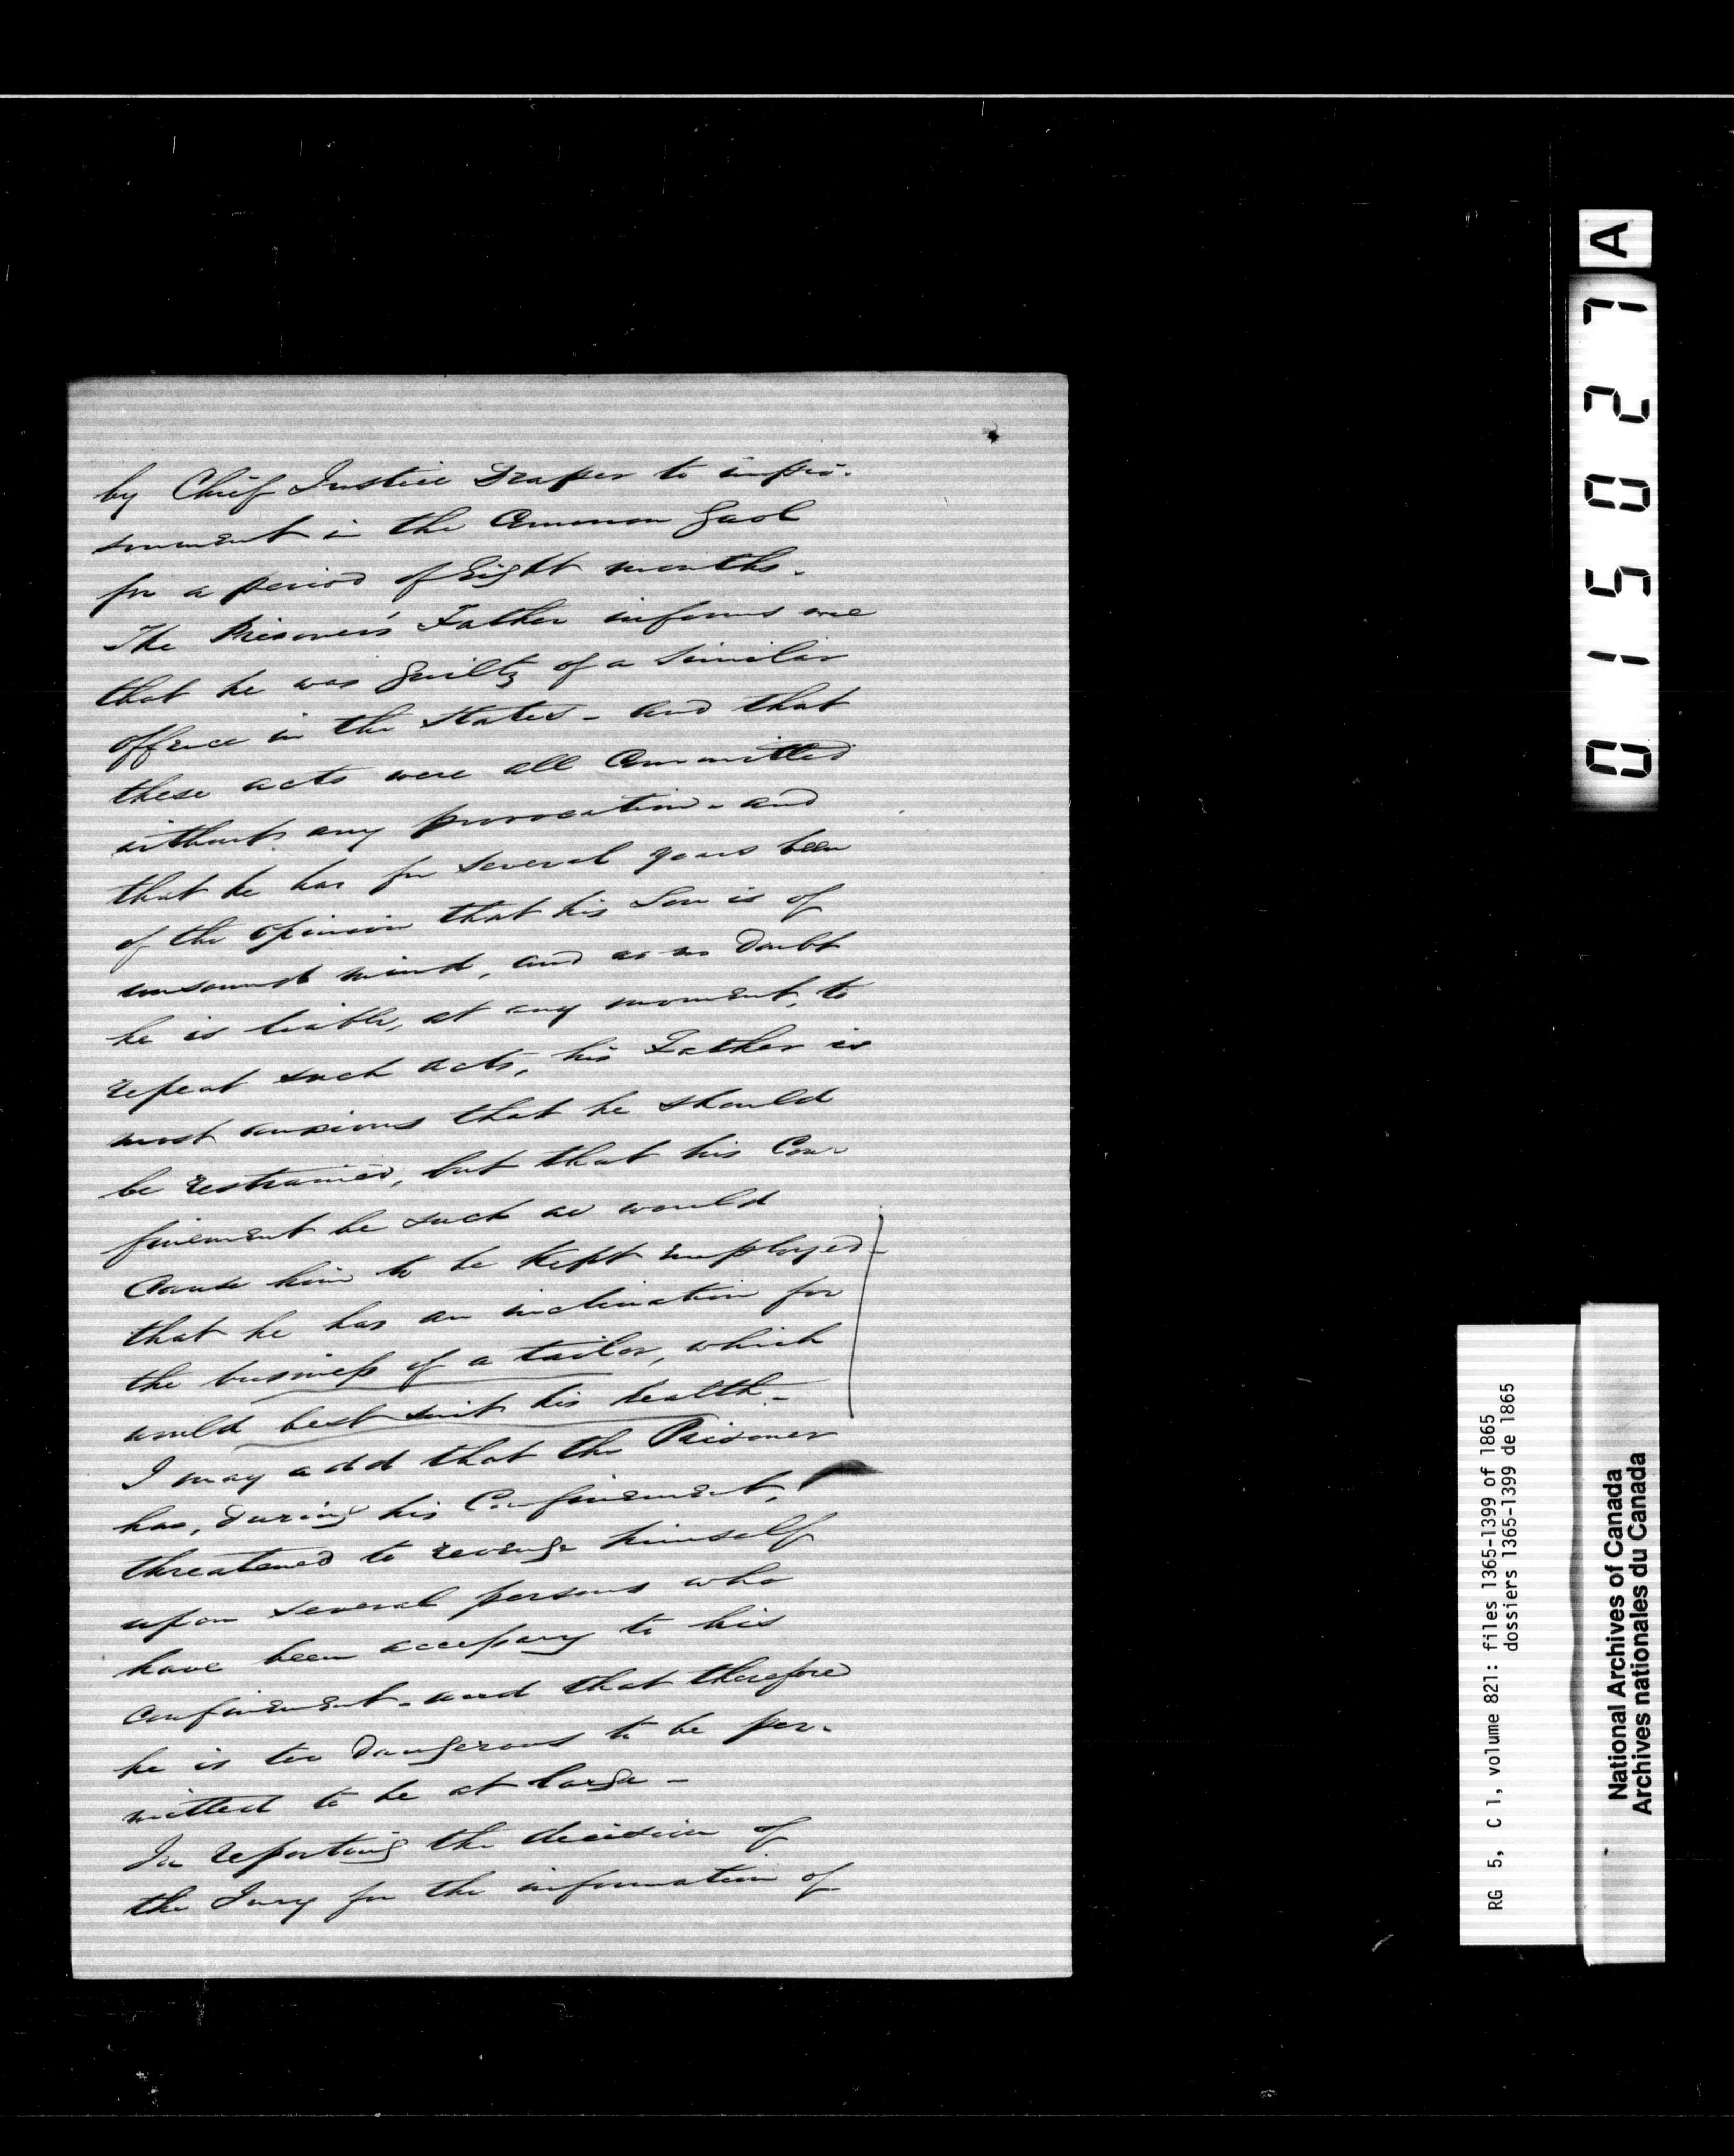 by Chief Justice Draper to impri-
sonment in the Common Gaol
for a period of Eight months.
The Prisoner's Father informs me
that he was guilty of a similar
offence in the States - and that
these acts were all Committed
without any provocation - and
that he has for several years been
of the opinion that his Son is of
unsound mind, and as no doubt
he is liable, at any moment, to
repeat such acts, his Father is
most anxious that he should
be restrained, but that his Con-
finement be such as would
Cause him to be Kept employed -
that he has an inclination for
the business of a tailor, which
would best suit his health -
I may add that the Prisoner
has, during his Confinement,
threatened to revenge himself
upon several persons who
have been accessary to his
confinement - and that therefore
he is too dangerous to be per-
mitted to be at large -
In reporting the decision of
the Jury for the information of
A
015027
RG 5, C 1, volume 821: files 1365-1399 of 1865
dossiers 1365-1399 de 1865
National Archives of Canada
Archives nationales du Canada